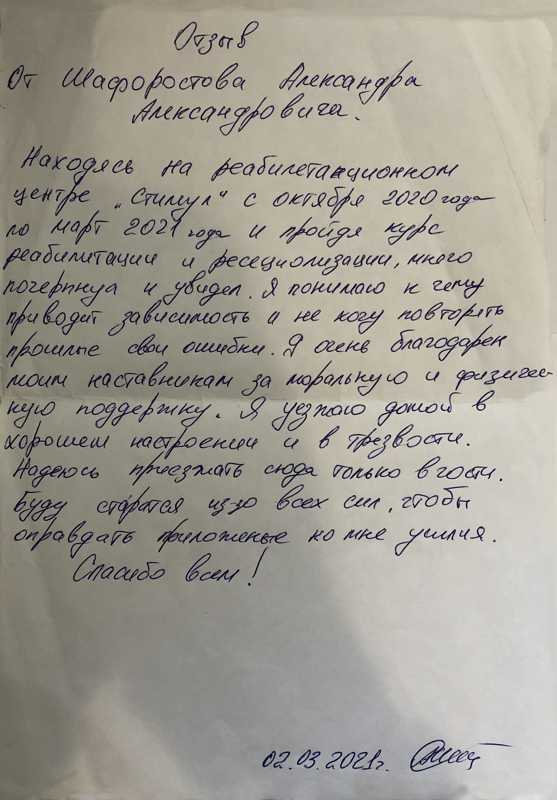 Отзыв
От Шафоростова Александра
Александровича.
Находясь на реабилетационном
центре „Стимул“ с октября 2020 года
по март 2021 года и пройдя курс
реабилитации и ресециолизации, много
почерпнул и увидел. Я понимаю к чему
приводит зависимость и не хочу повторять
прошлые свои ошибки. Я очень благодарен
моим наставникам за моральную и физичес-
кую поддержку. Я уезжаю домой в
хорошем настроении и в трезвости.
Надеюсь приезжать сюда только в гости.
Буду старатся изо всех сил, чтобы
оправдать приложеные ко мне усилия.
Спасибо всем!
02.03.2021г.